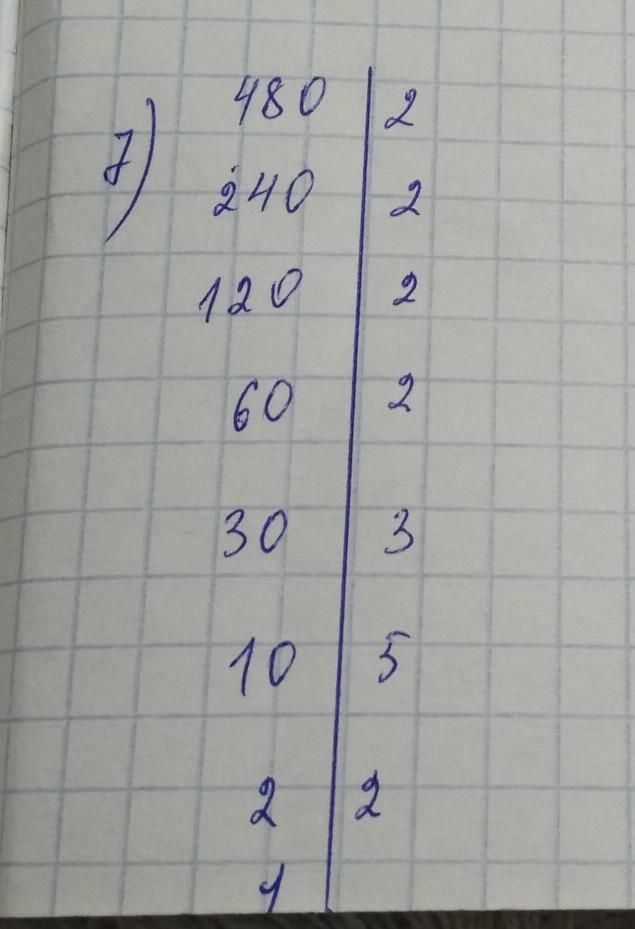 7) 480 | 2
240 | 2
120 | 2
60 | 2
30 | 3
10 | 5
2 | 2
1 |